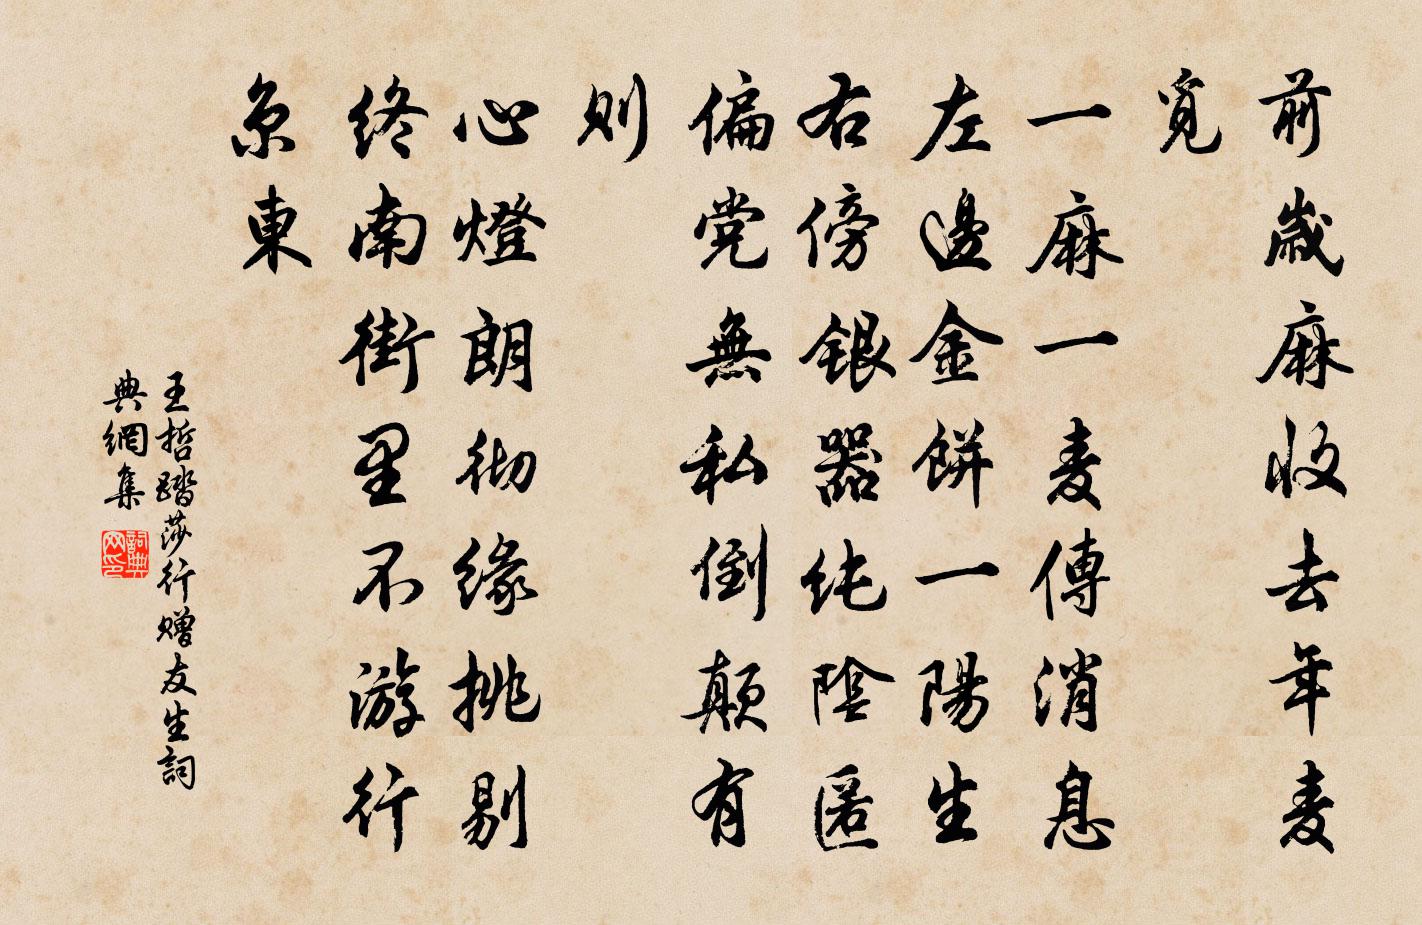 前歲麻收去年麦
覓
一麻一麦傳消息
左邊金餅一陽生
右傍銀器纯陰匿
偏党無私倒颠有
则
心燈朗彻缘挑剔
終南街里不游行
京東
王哲踏莎行赠友生詞
典網集
詞典
网印